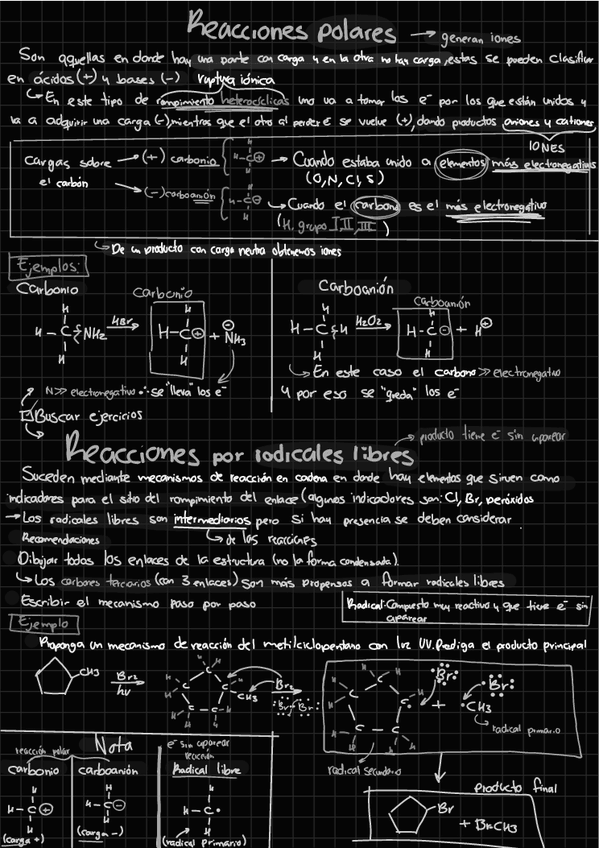 Reacciones polares → generan iones
Son aquellas en donde hay una parte con carga y en la otra no hay carga, estas se pueden clasificar
en ácidos (+) y bases (-) ruptura iónica
↳ En este tipo de rompimiento heterocíclicas uno va a tomar los e⁻ por los que están unidos y
va a adquirir una carga (-), mientras que el otro al perder e⁻ se vuelve (+), dando productos aniones y cationes
IONES
Cargas sobre
el carbón
→ (+) carbonio { H-C⊕ → Cuando estaba unido a elementos más electronegativos
(O, N, Cl, S)
→ (-) carboanión { H-C⊖ ↳ Cuando el carbono es el más electronegativo
(H, grupo I, II, III)
↳ De un producto con carga neutra obtenemos iones
Ejemplos:
Carbonio
carbonio
H
H
H-C NH₂ HBr → H-C⊕ + NH₃
H
H
N>> electronegativo ∴ se "lleva" los e⁻
Buscar ejercicios
Carboanión
Carboanión
H
H
H-C H H₂O₂ → H-C⊖ + H⊕
H
H
↳ En este caso el carbono >> electronegativo
y por eso se "queda" los e⁻
Reacciones por radicales libres
→ producto tiene e⁻ sin aparear
Suceden mediante mecanismos de reacción en cadena en donde hay elementos que sirven como
indicadores para el sitio del rompimiento del enlace (algunos indicadores son: Cl, Br, peróxidos
→ Los radicales libres son intermediarios pero si hay presencia se deben considerar
↳ de las reacciones
Recomendaciones
Dibujar todos los enlaces de la estructura (no la forma condensada).
↳ Los carbonos terciarios (con 3 enlaces) son más propensos a formar radicales libres
Escribir el mecanismo paso por paso
Radical: Compuesto muy reactivo y que tiene e⁻ sin
aparear
Ejemplo
Proponga un mecanismo de reacción del metilciclopentano con luz UV. Prediga el producto principal
CH₃
Br₂
hν
CH₃
Br₂
Br-Br:
Br:
+
Br:
•CH₃
radical primario
radical secundario
producto final
Br
+ BrCH₃
Nota
reacción polar
carbonio
H
H-C⊕
H
(carga +)
carboanión
H
H-C⊖
H
(carga -)
e⁻ sin aparear
reacción
Radical libre
H
H-C•
H
(radical primario)